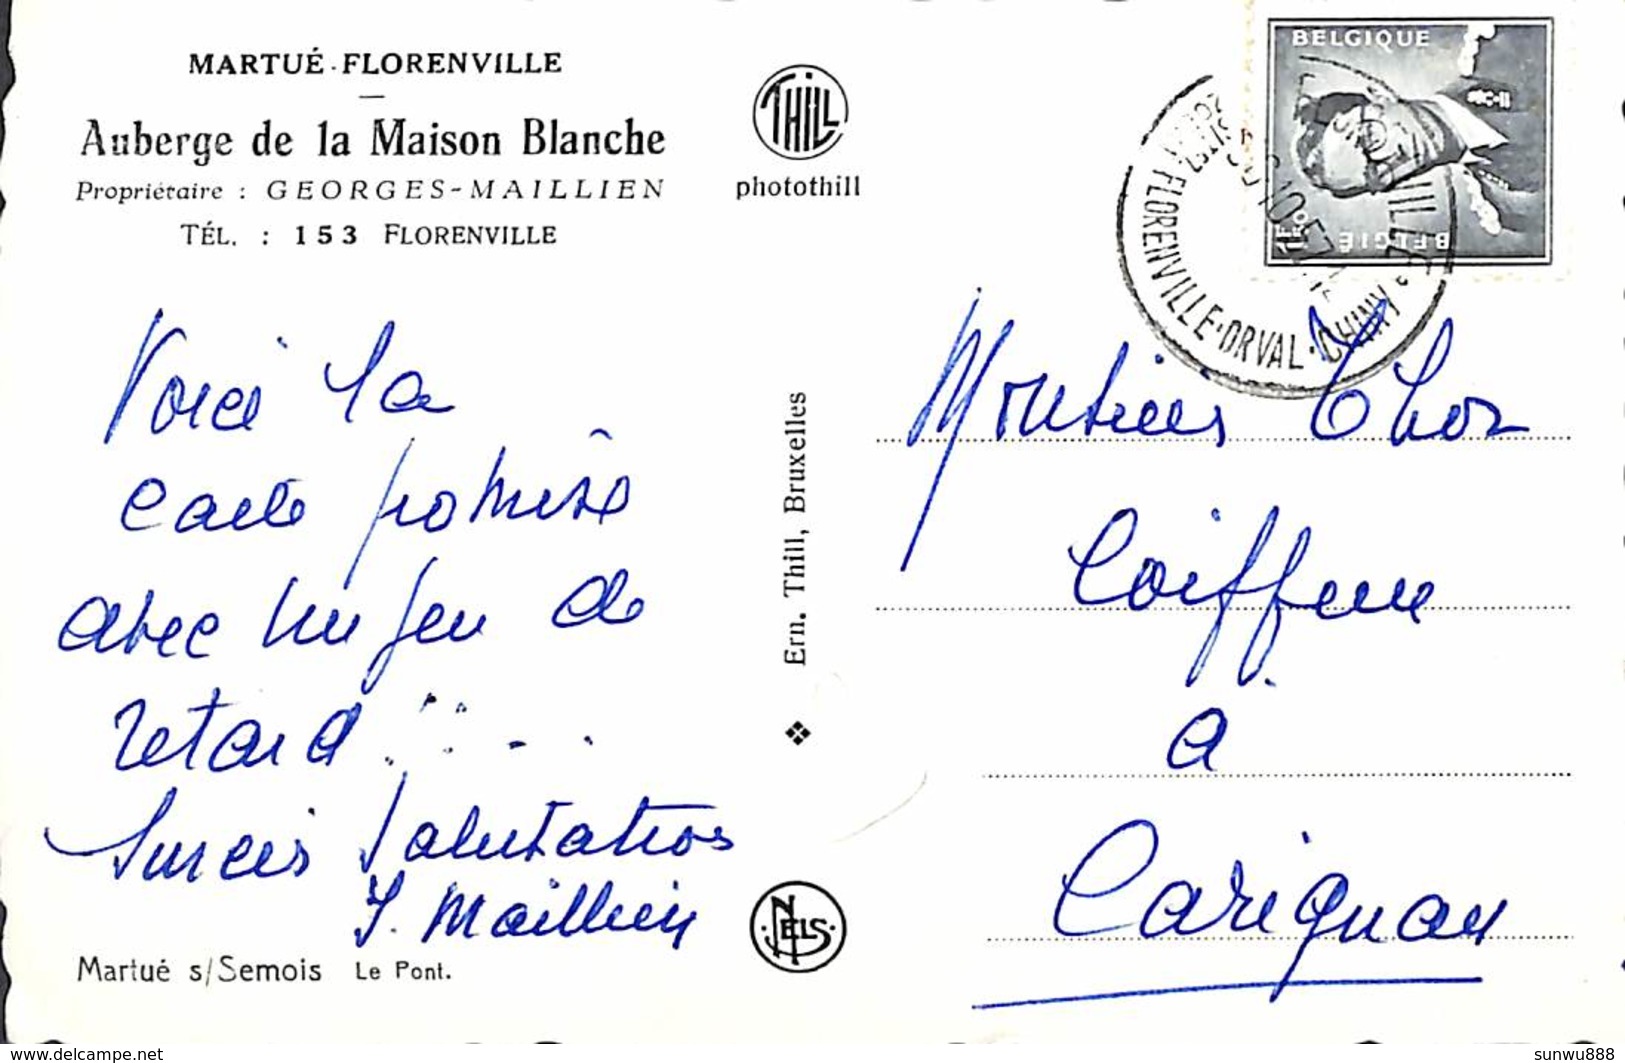 MARTUÉ - FLORENVILLE
Auberge de la Maison Blanche
Propriétaire : GEORGES-MAILLIEN
TÉL. : 153 FLORENVILLE
THILL
photothill
BELGIQUE
BELGIË
FLORENVILLE·ORVAL·CHINY
Voici la
carte promise
avec un peu de
retard.....
Sincères Salutations
J. Maillien
Martué s/Semois Le Pont.
Ern. Thill, Bruxelles
NELS
Monsieur Thon
Coiffeur
à
Carignan
www.delcampe.net
sunwu888